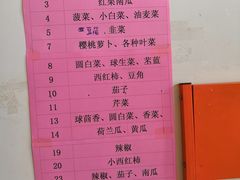 3 红菜南瓜
4 菠菜、小白菜、油麦菜
5 韭菜
7 樱桃萝卜、各种叶菜
8 圆白菜、球生菜、苤蓝
9 西红柿、豆角
10 茄子
11 芹菜
13 球茴香、圆白菜、香菜、
14 荷兰瓜、黄瓜
19 辣椒
20 小西红柿
23 辣椒、茄子、南瓜